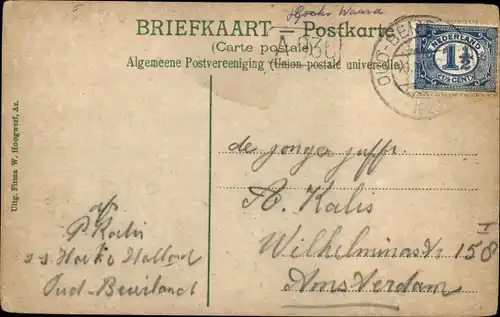 Hoeks Waard
BRIEFKAART – Postkarte
(Carte postale)
Algemeene Postvereeniging (Union postale universelle)
OUD-BEI
NEDERLAND
1½
CENT
Uitg. Firma W. Hoogwerf, Az.
de jonger juffr.
A. Kalis
Wilhelminastr 158 I
Amsterdam
afz
P. Kalis
s s Hoek v Holland
Oud-Beierland